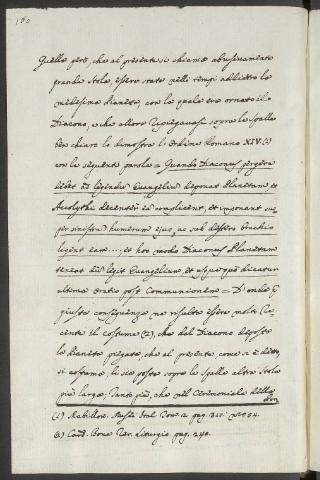 160
Quello però, che al presente si chiama abusivamente
grande Stola, essere stato nelli tempi addietro la
medesima Pianeta, con la quale era ornato il
Diacono, e che allora ripiegavasi sopra la Spalla
ben chiaro lo dimostra l'Ordine Romano XIV. (1)
con le seguenti parole = Quando Diaconus pergere
debet ad legendum Evangelium deponat Planetam, et
Acolythi decenter eam complicent, et imponant su-
per sinistrum humerum ejus, ac sub dextero brachio
ligent eam...., et hoc modo Diaconus Planetam
teneat dum legit Evangelium, et usque quo dicatur
ultima oratio post Communionem = D'onde per
giusta conseguenza ne risulta essere molto re-
cente il costume (2), che dal Diacono deposta
la Pianeta piegata, che al presente, come si è detto,
si costuma, li sia posta sopra la Spalla altra Stola
più larga; Tanto più, che nel Ceremoniale delle
(1) Mabillon. Musei Ital. Tom. 2. pag. 311. n° 54.
(2) Card. Bona Rer. Liturgic. pag. 240.